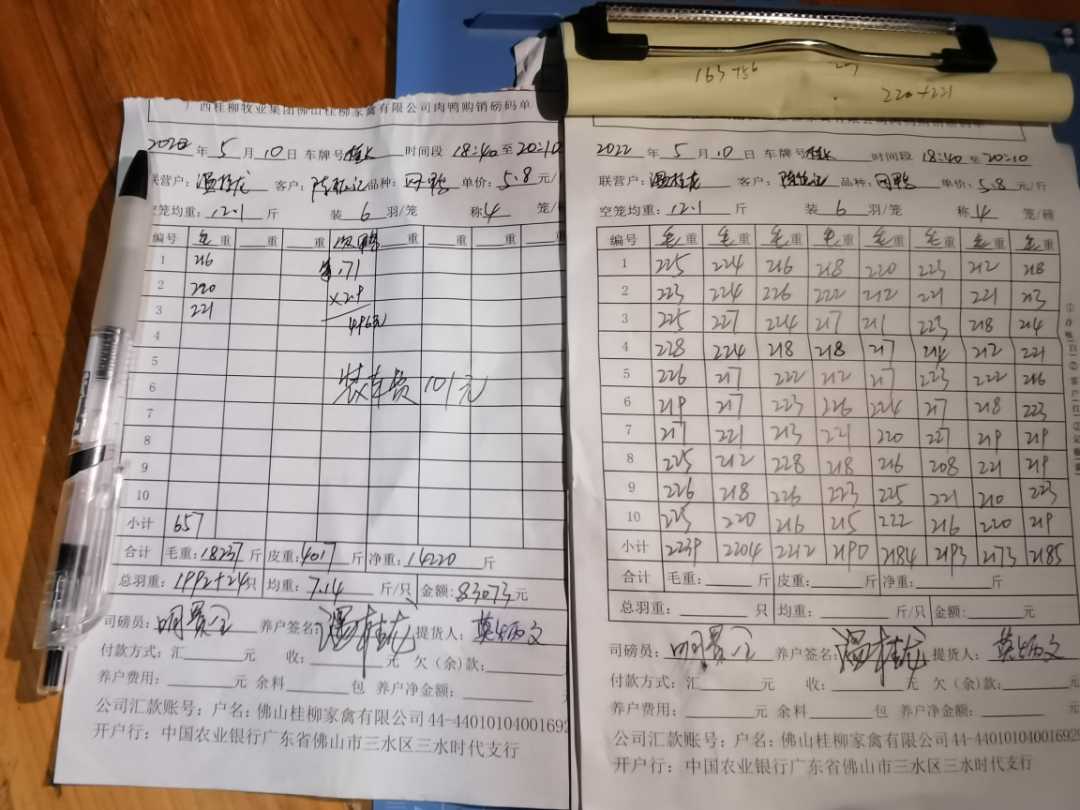 163 +56
220 +221
广西桂柳牧业集团佛山桂柳家禽有限公司肉鸭购销磅码单
2022年 5月10日 车牌号 时间段 18:40至20:10
联营户: 客户: 品种: 单价:5.8元/
空笼均重:12.1斤 装 6 羽/笼 称 4 笼/
编号 毛重 重 重 重 重 重
1 216 171
2 220 ×2.9
3 221 496元
4
5
6 装车费101元
7
8
9
10
小计 657
合计 毛重:18237斤 皮重:4017斤 净重:14220斤
总羽重:1992+24只 均重:7.14斤/只 金额:83073元
司磅员: 养户签名:温桂龙 提货人:
付款方式:汇 元 收: 元 欠(余)款:
养户费用: 元 余料 包 养户净金额:
公司汇款账号:户名:佛山桂柳家禽有限公司44-4401010400169
开户行:中国农业银行广东省佛山市三水区三水时代支行
2022年 5月10日 车牌号 时间段 18:40至20:10
联营户:温桂龙 客户: 品种: 单价:5.8元/斤
空笼均重:12.1斤 装 6 羽/笼 称 4 笼/磅
编号 毛重 毛重 毛重 毛重 毛重 毛重 毛重 毛重
1 225 224 216 218 220 223 212 218
2 223 224 226 222 212 221 221 213
3 225 227 224 217 211 223 218 214
4 228 224 218 218 217 214 212 221
5 226 217 222 212 217 223 222 216
6 219 217 223 226 224 217 218 223
7 217 221 213 221 220 227 219 219
8 225 212 228 218 216 208 221 219
9 226 218 226 223 225 221 210 223
10 225 220 216 215 222 216 220 219
小计 2239 2204 2212 2190 2184 2193 2173 2185
合计 毛重: 斤 皮重: 斤 净重: 斤
总羽重: 只 均重: 斤/只 金额: 元
司磅员: 养户签名:温桂龙 提货人:
付款方式:汇 元 收: 元 欠(余)款:
养户费用: 元 余料 包 养户净金额:
公司汇款账号:户名:佛山桂柳家禽有限公司44-44010104001692
开户行:中国农业银行广东省佛山市三水区三水时代支行